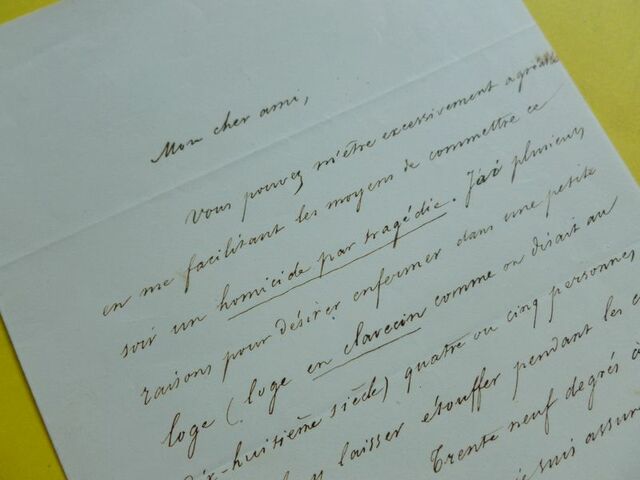 Mon cher ami,
Vous pouvez m'être excessivement agréable
en me facilitant les moyens de commettre ce
soir un homicide par tragédie. J'ai plusieurs
raisons pour désirer enfermer dans une petite
loge (loge en clavecin comme on disait au
dix-huitième siècle) quatre ou cinq personnes
laisser étouffer pendant les
Trente neuf degrés
je suis assur